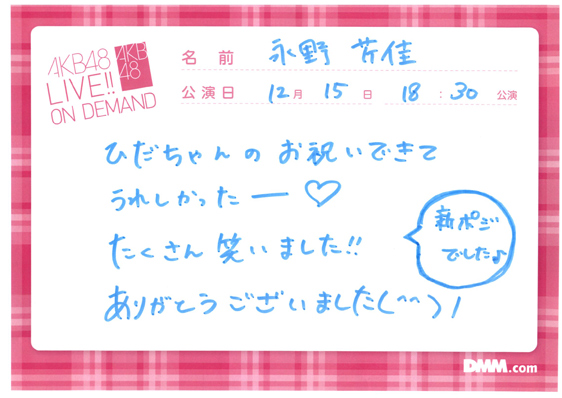 AKB48
LIVE!!
ON DEMAND
AKB
48
名前 永野 芹佳
公演日 12月 15日 18:30 公演
ひだちゃんの お祝いできて
うれしかったー♡
たくさん 笑いました!!
新ポジ
でした♪
ありがとうございました(^^)/
DMM.com